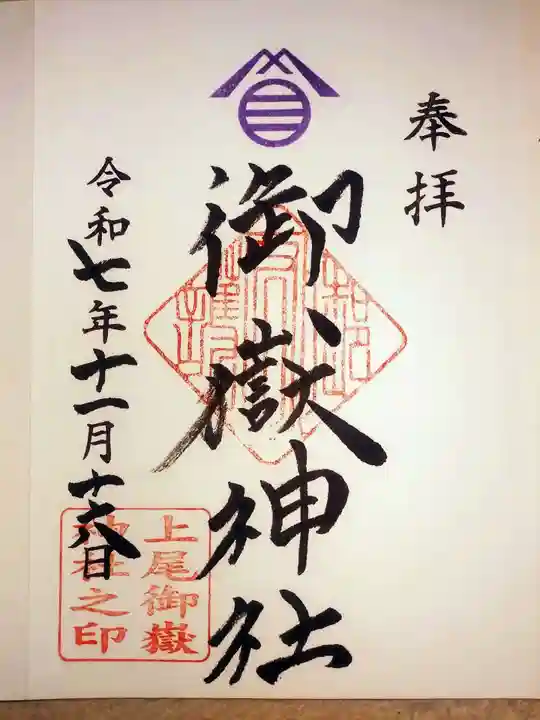 奉拝
御嶽神社
令和七年十一月十六日
上尾御嶽
神社之印